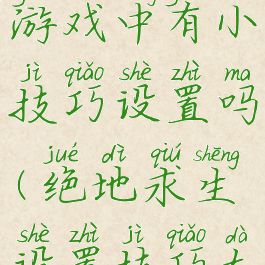 游戏中有小
jì qiǎo shè zhì ma
技巧设置吗
jué dì qiú shēng
（绝地求生
shè zhì jì qiǎo dà
设置技巧大